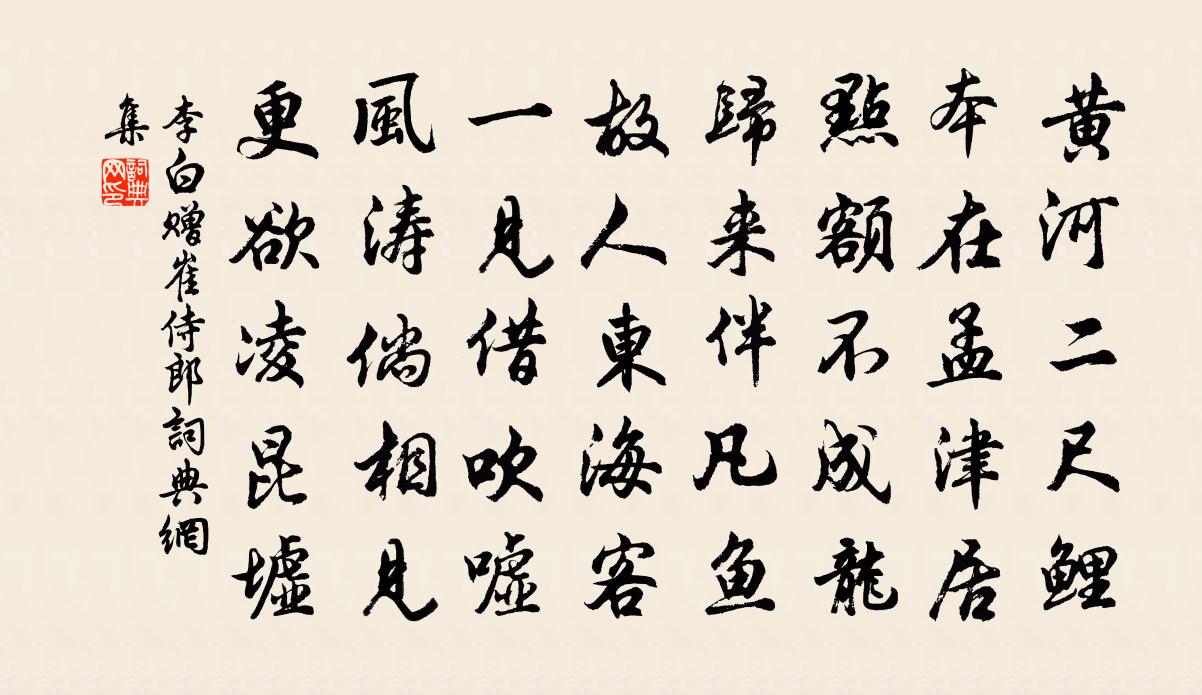 黃河二尺鯉
本在孟津居
點額不成龍
歸来伴凡魚
故人東海客
一見借吹噓
風濤倘相見
更欲凌昆墟
李白赠崔侍郎詞典網
集
詞典
网印